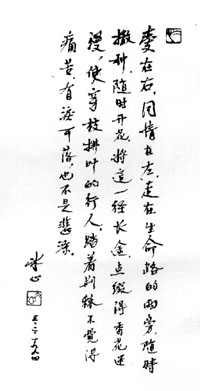 爱在右,同情在左,走在生命路的两旁,随时
撒种,随时开花,将这一径长途,点缀得香花迷
漫,使穿枝拂叶的行人,踏着荆棘,不觉得
痛苦,有泪可落,也不是悲凉。
冰心